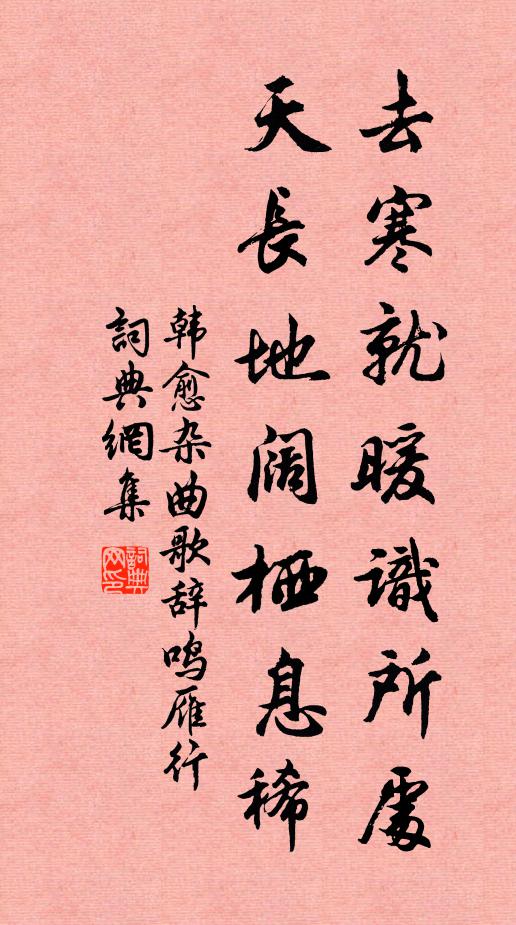 去寒就暖識所處
天長地闊栖息稀
韩愈杂曲歌辞鸣雁行
詞典網集
詞典网印